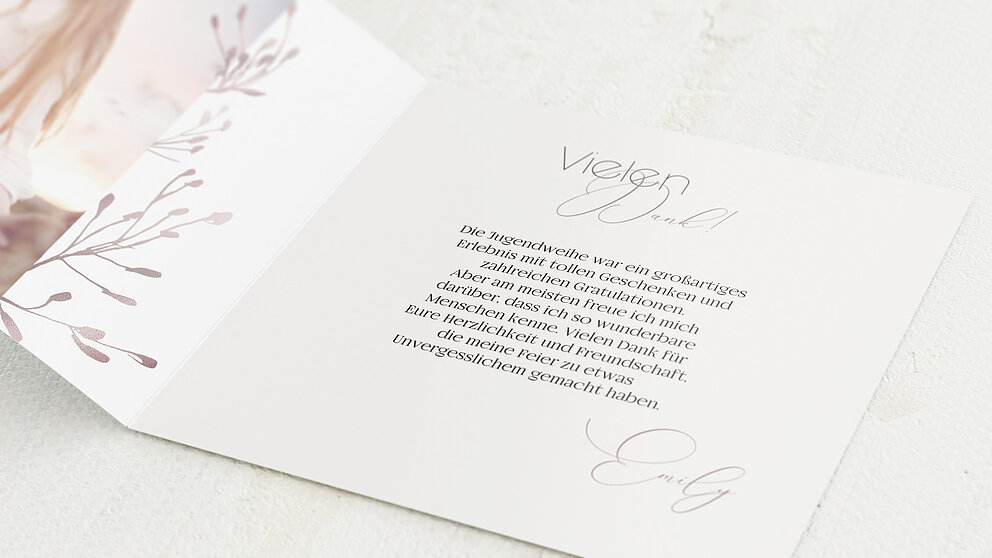 Vielen
Dank!
Die Jugendweihe war ein großartiges
Erlebnis mit tollen Geschenken und
zahlreichen Gratulationen.
Aber am meisten freue ich mich
darüber, dass ich so wunderbare
Menschen kenne. Vielen Dank für
Eure Herzlichkeit und Freundschaft,
die meine Feier zu etwas
Unvergesslichem gemacht haben.
Emily